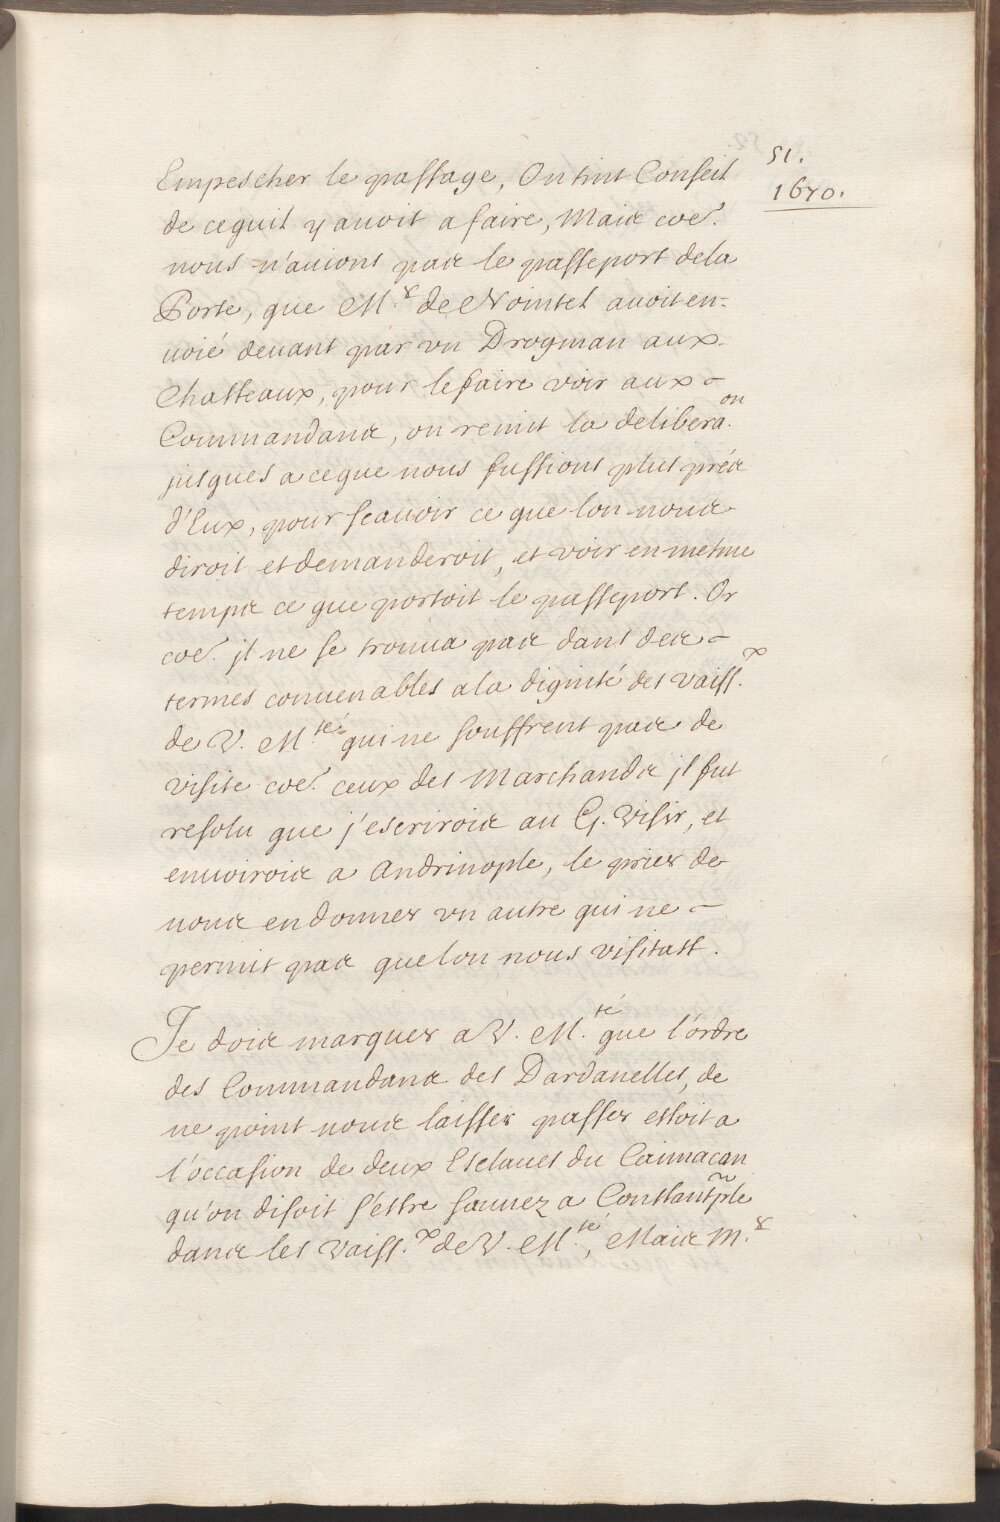 51.
1670.
Empescher le passage, On tint Conseil
de cequil y auoit a faire, Mais coē.
nous n'auions pas le passeport dela
Porte, que M.r de Nointel auoit en=
uoié deuant par vn Drogman aux
Chasteaux, pour le faire voir aux -
Commandans, on remit la delibera.on
jusques a ceque nous fussions plus prés
d'Eux, pour scauoir ce que lon nous
diroit et demanderoit, et voir en mesme
temps ce que portoit le passeport. Or
coē. jl ne se trouua pas dans des -
termes conuenables ala dignité des vaiss.x
de V. M.té qui ne souffrent pas de
visite coē. ceux des Marchands jl fut
resolu que j'escrirois au G. Visir, et
enuoirois a Andrinople, le prier de
nous en donner vn autre qui ne -
permit pas quelon nous visitast.
Je dois marquer a V. M.té que l'ordre
des Commandans des Dardanelles, de
ne point nous laisser passer estoit a
l'occasion de deux Esclaues du Caimacan
qu'on disoit s'estre sauuez a Constantp̃le
dans les vaiss.x de V. M.té, Mais M.r